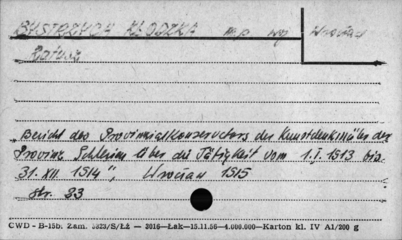 BYSTRZYCA KŁODZKA m.p. wrp Wrocław
Ratusz
„Bericht des Provinzialkonservators der Kunstdenkmäler der
Provinz Schlesien über die Tätigkeit vom 1.I.1913 bis
31.XII.1914", Wrocław 1915
str. 33
CWD - B-15b. Zam. 5323/S/Łż — 3016—Łak—15.11.56—4.000.000—Karton kl. IV A1/200 g